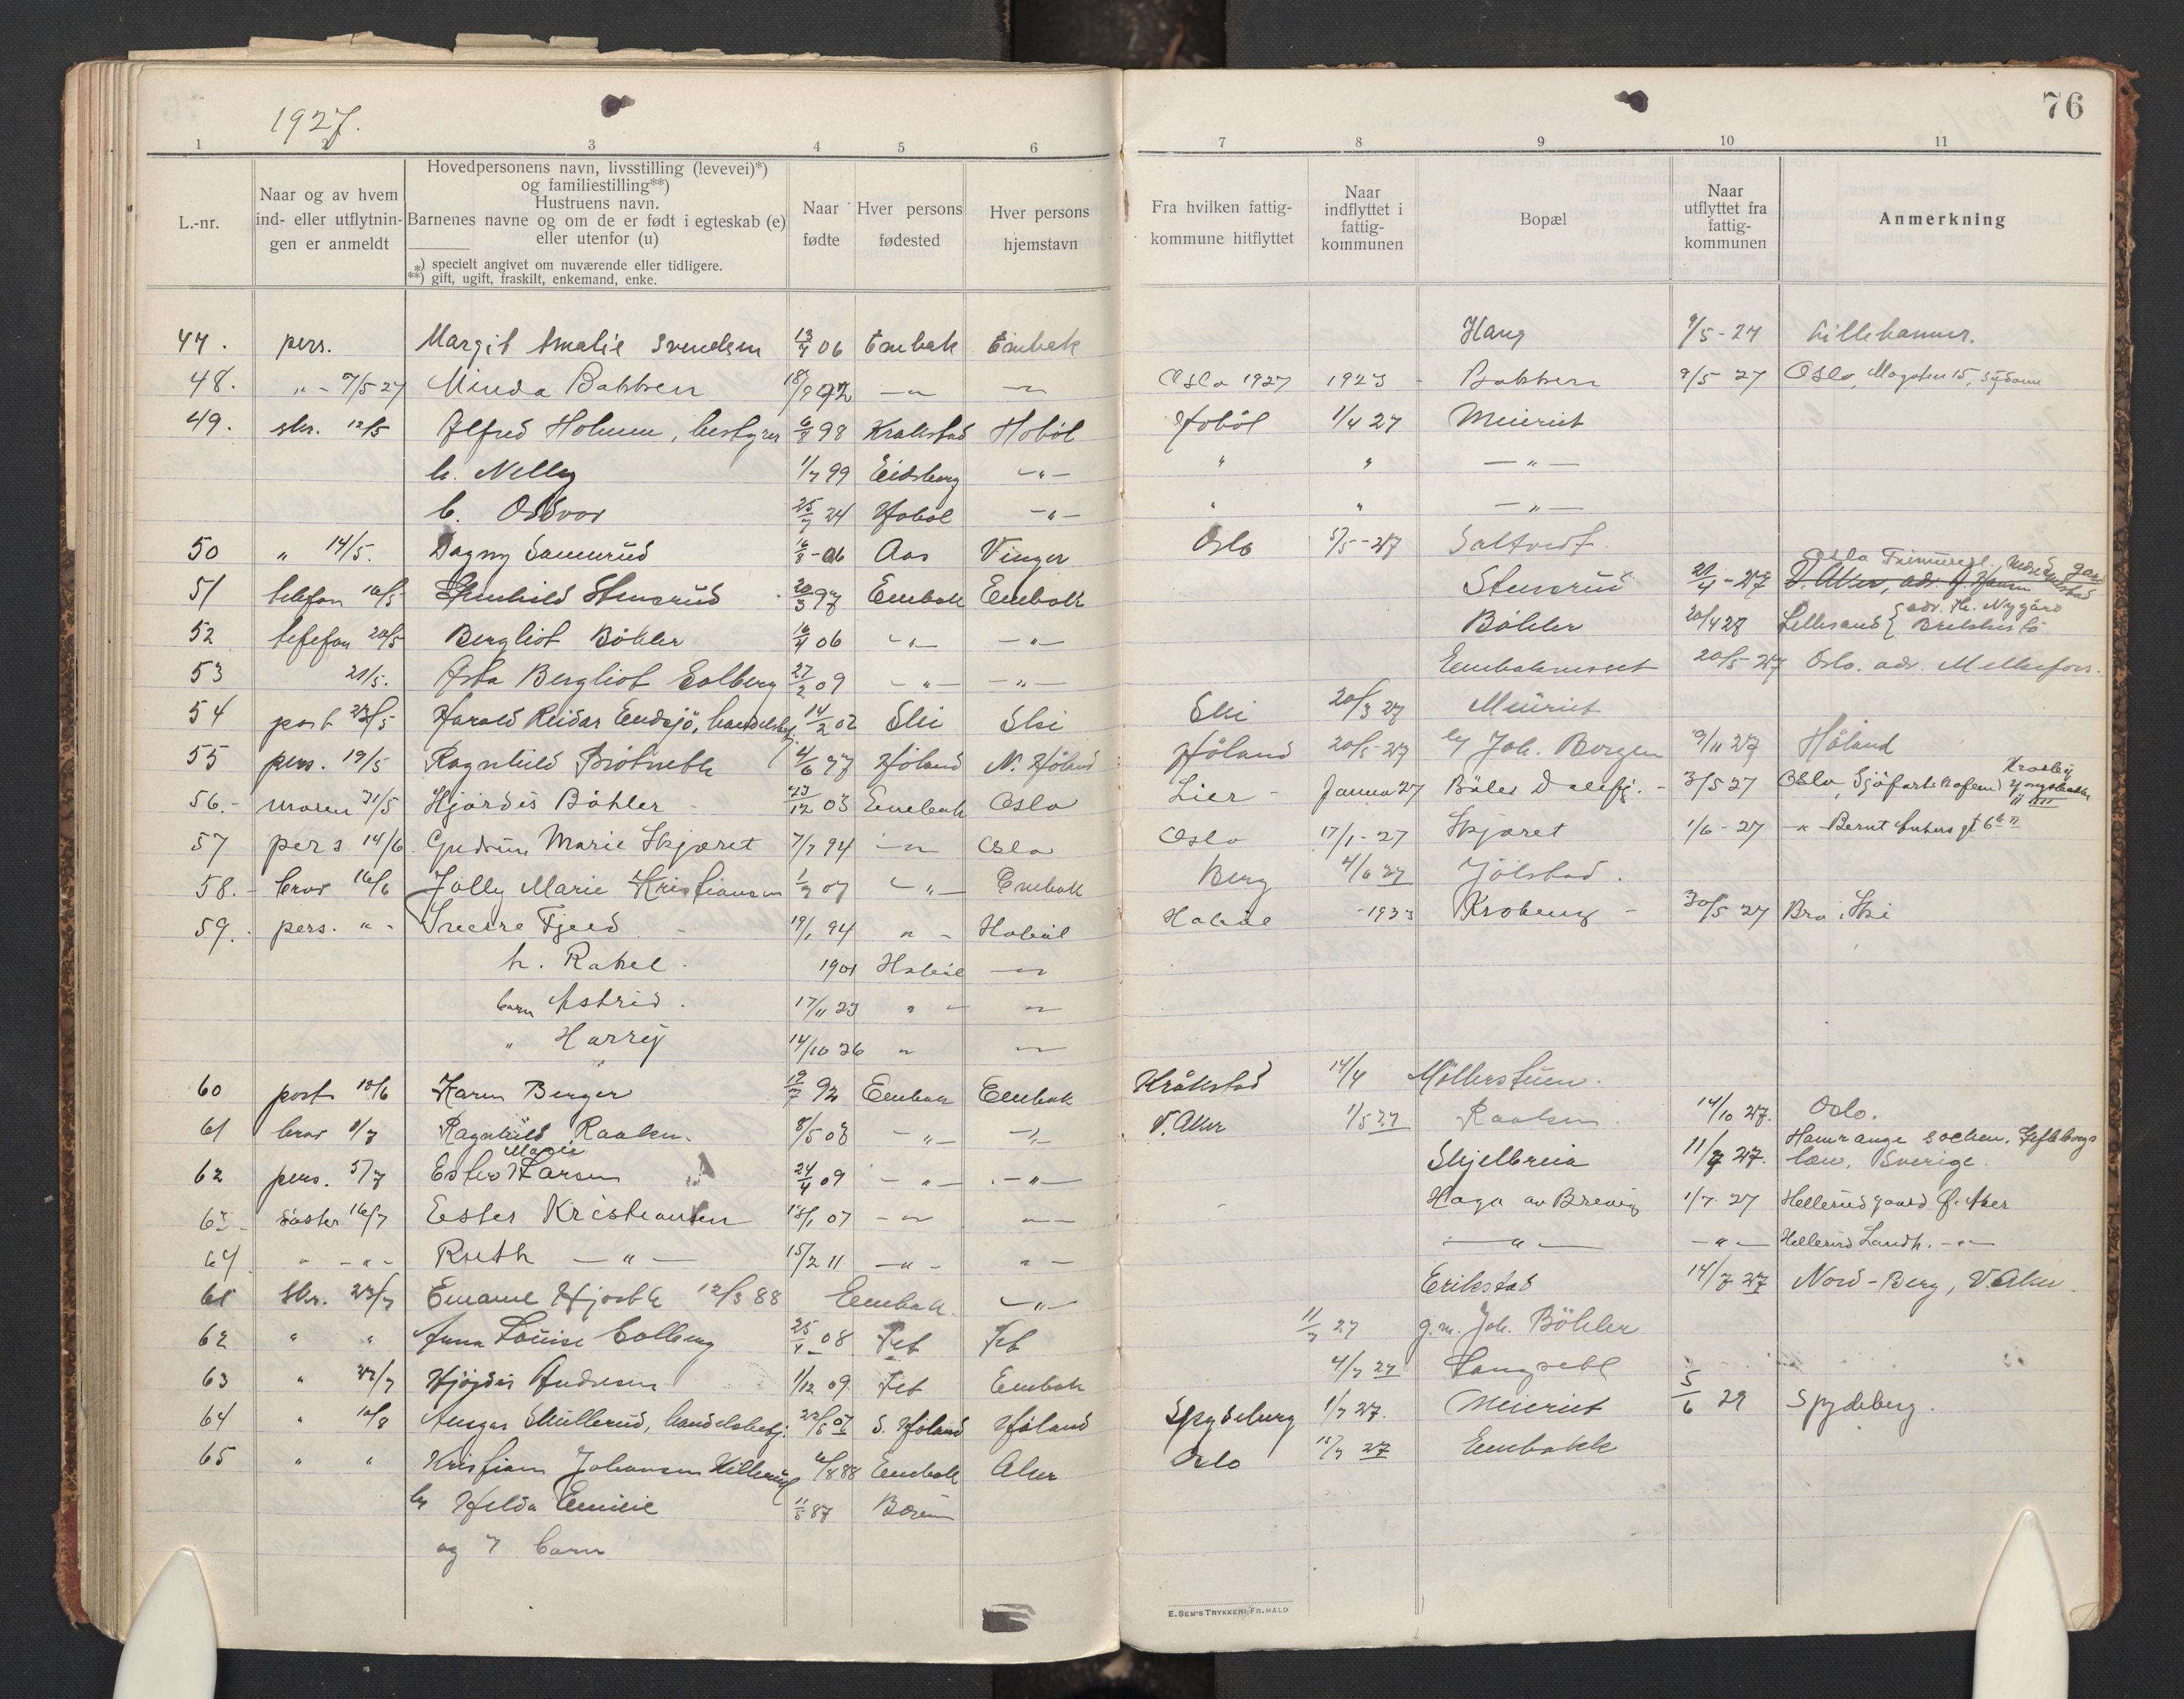 1927.
76
1 2 3 4 5 6 7 8 9 10 11
L.-nr.
Naar og av hvem
ind- eller utflytnin-
gen er anmeldt
Hovedpersonens navn, livsstilling (levevei)*)
og familiestilling**)
Hustruens navn.
Barnenes navne og om de er født i egteskab (e)
eller utenfor (u)
*) specielt angivet om nuværende eller tidligere.
**) gift, ugift, fraskilt, enkemand, enke.
Naar
fødte
Hver persons
fødested
Hver persons
hjemstavn
Fra hvilken fattig-
kommune hitflyttet
Naar
indflyttet i
fattig-
kommunen
Bopæl
Naar
utflyttet fra
fattig-
kommunen
Anmerkning
47. pers. Margit Amalie Svendsen 13/4 06 Enebak Enebak Haug 9/5-27 Lillehammer.
48. "- 7/5 27 Minda Bakken 18/9 92 -"- -"- Oslo 1927 1923 - Bakken 9/5 27 Oslo,
49. skr. 12/5 Alfred Holmen, bestyrer 6/8 98 Krakstad Hobøl Hobøl 1/4 27 Meieriet
h. Nelly 1/7 99 Eidsberg -"- " " -"-
b. Oddvor 25/7 24 Hobøl -"- " " -"-
50 " 14/5. Dagny 16/8-06 Aas Vinger Oslo 5/5-27
51 telefon 16/5 Stensrud 20/3 97 Enebak Enebak Stensrud 21/4-27 Oslo
52 telefon 20/5 Bergliot Böhler 16/4 06 -"- -"- Böhler 20/4 27 Lillesand { adr. Th. Nygård
53 21/5. Asta Bergliot Solberg 27/2 09 -"- -"- Enebaknesset 20/5-27 Oslo. adr.
54 post 27/5 Harald Reidar Endsjö, handelsbetj. 14/2 02 Ski Ski Ski 20/3 27 Meieriet
55 pers. 19/5 Ragnhild 4/6 77 Höland N. Höland Höland 20/5-27 h/ Joh. Borgen 9/11 27 Höland
56.- moren 31/5 Hjördis Böhler 23/12 03 Enebak Oslo Lier - Januar 27 Böler - 3/5 27 Oslo,
57 pers 14/6. Gudrun Marie Skjæret 7/7 94 -"- Oslo Oslo 17/1-27 Skjæret 1/6-27 -"- Bernt Ankers gt 6
58.- brev 16/6 Jölly Marie Kristiansen 1/7 07 -"- Enebak Berg 4/6 27 Jölstad.
59. pers. "- Sverre Fjeld 19/1 94 "- Hobøl Hobøl -1923 Kroberg - 30/5 27 Bro i Ski
h. Rakel. 1901 Hobøl -"-
barn Astrid. 17/11 23 "- -"-
" Harry 14/10 26 " -"-
60 post 10/6 Karen Berger 19/7 92 Enebak Enebak Kråkstad 14/4 Möllerstuen.
61 brev 8/7 Ragnhild Raaken. 8/5 03 -"- -"- V. Aker 1/5 27 Raaken. 14/10 27. Oslo.
62 pers. 5/7 Ester Marie Larsen 24/4 09 -"- -"- Skjelbreia 11/7 27. Hamrånge socken. Gefleborgs
læn, Sverige.
63- søster 16/7 Ester Kristiansen 18/1 07 -"- -"- Haga av Brevig 1/7. 27 Hellerudgaard Ö. Aker
64. " -"- Ruth -"- 15/2 11 -"- "- -"- -"- Hellerud Landh. -"-
61 Skr. 23/7 12/3 88 Enebak. -"- Erikstad 14/7 27 Nord-Berg, V. Aker.
62 " " Anna Louise Solberg 25/1 08 Fet Fet 11/7 27 g.m. Joh. Böhler
63 " 22/7 Hjördis Andresen 1/12 09 Fet Enebak 4/7 27
64 " 10/8 Ansgar Skullerud, handelsbetj. 22/5 07 S. Höland Höland Spydeberg 1/7 27. Meieriet 5/6 29 Spydeberg.
65 " " Kristian Johansen 4/8 88 Enebak Aker Oslo 15/7 27 Enebakk
h/ Hilda Emilie 11/5 87 Bærum
og 7 barn
E. SEM'S TRYKKERI, FR.HALD